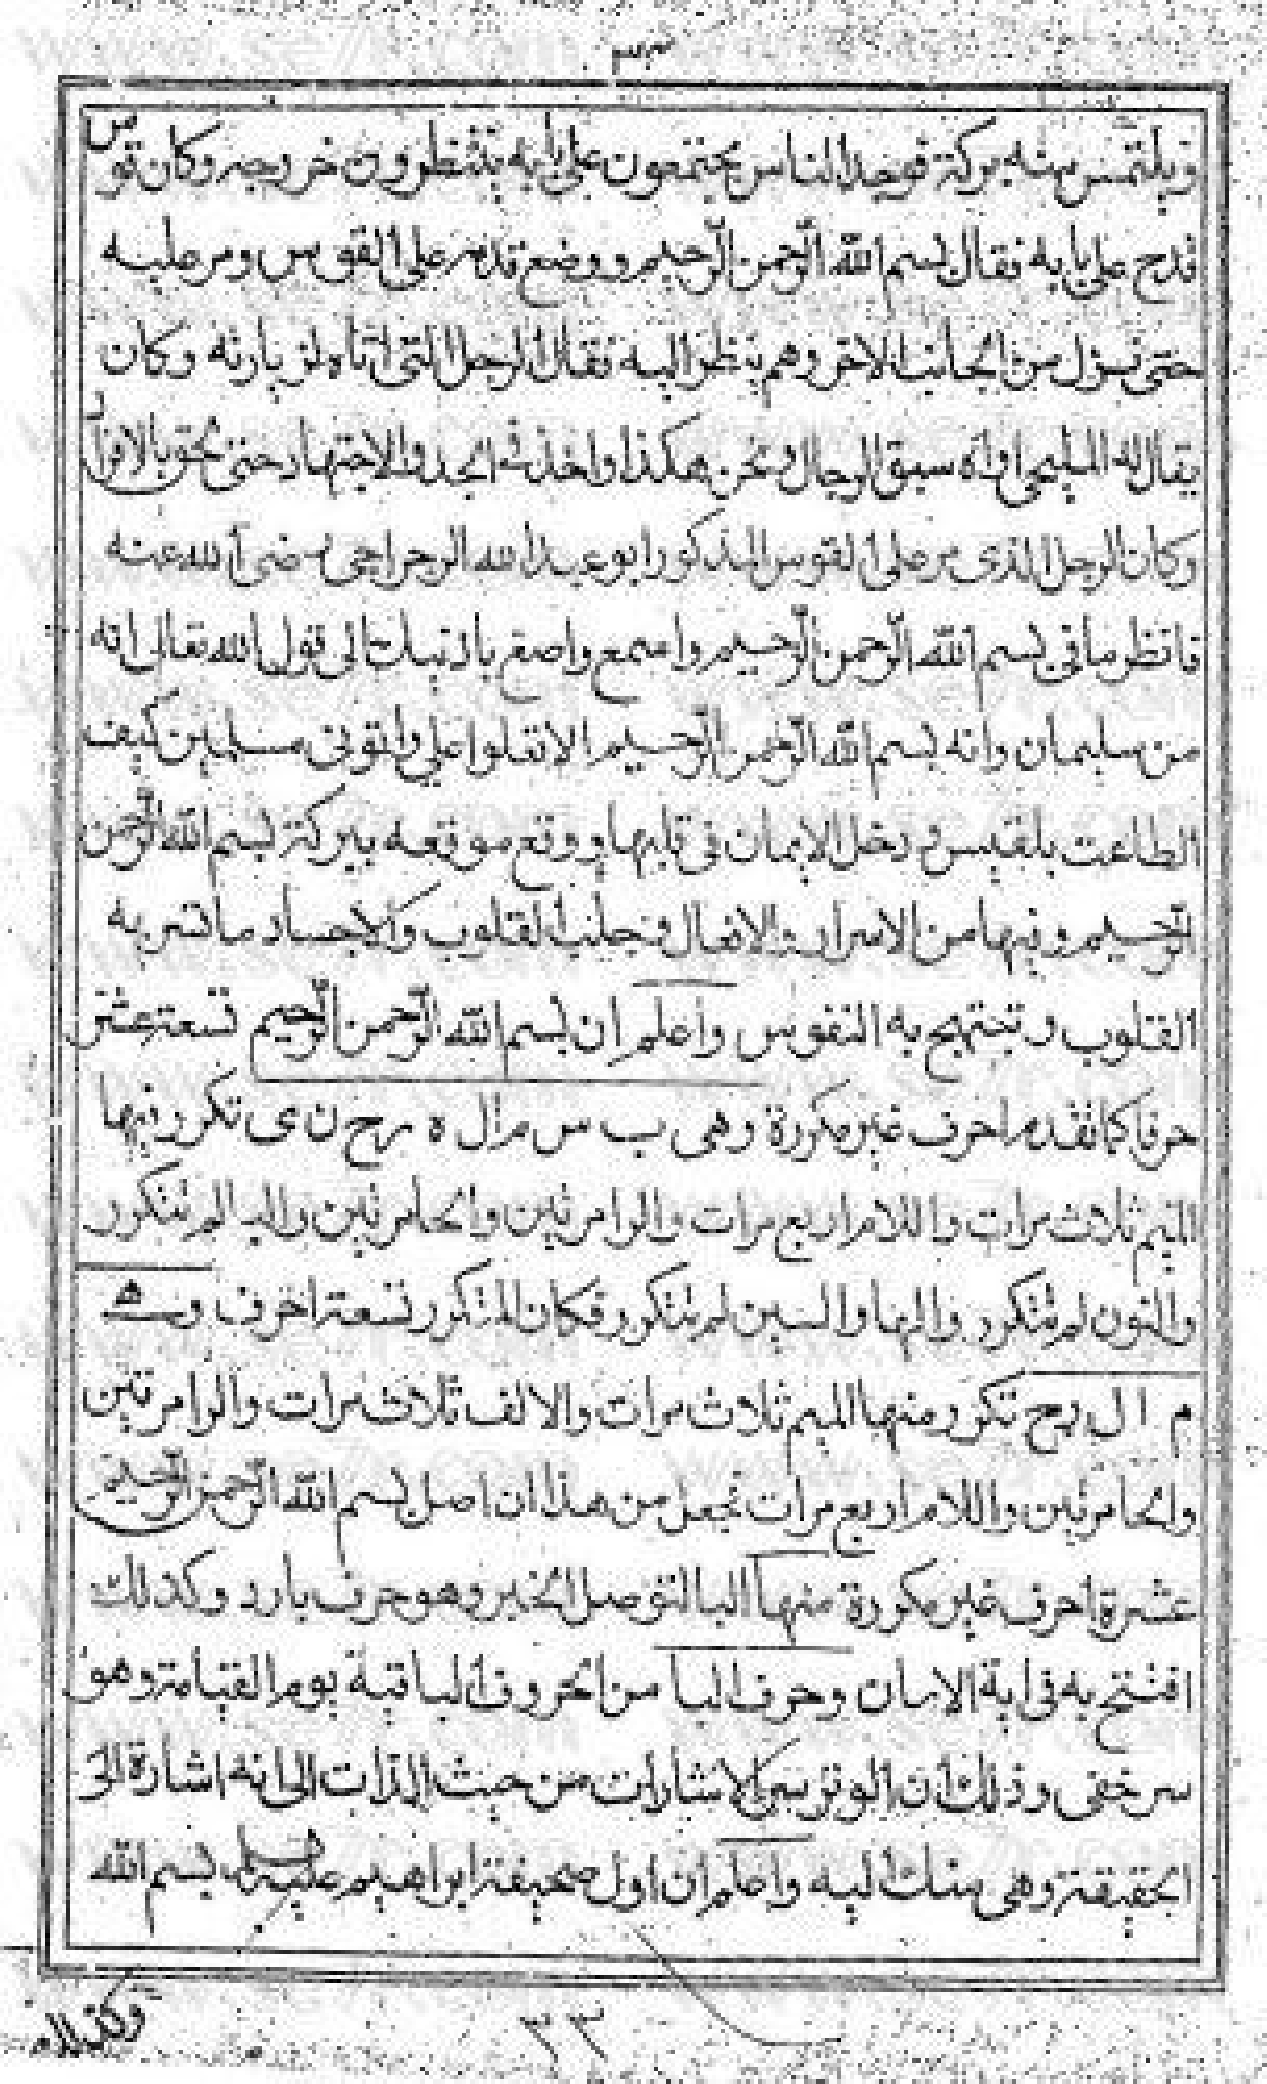 ٣٣
ويلتمس منه بركة فوجد الناس يجتمعون على بابه ينتظرون خروجه وكان قوس
قدح على بابه فقال بسم الله الرحمن الرحيم ووضع قدمه على القوس ومر عليه
حتى نزل من الجانب الاخر وهم ينظر اليه فقال الرجل التى اتاه لزيارته وكان
يقال له المليجى اواه سبق الرجال ونحن هكذا واخذ فى الجد والاجتهاد حتى لحق بالافراد
وكان الرجل الذى مر على القوس المذكور ابو عبد الله الرجراجى رضى الله عنه
فانظر ما فى بسم الله الرحمن الرحيم واسمع واصغ باذنيك الى قول الله تعالى انه
من سليمان وانه بسم الله الرحمن الرحيم الا تعلوا على واتونى مسلمين كيف
اطاعت بلقيس ودخل الايمان فى قلبها ووقع موقعه ببركة بسم الله الرحمن
الرحيم وفيها من الاسرار والافعال وجلب القلوب والاجساد ما تسر به
القلوب وتبتهج به النفوس واعلم ان بسم الله الرحمن الرحيم تسعة عشر
حرفا كما تقدم احرف غير مكررة وهى ب س م ا ل ه ر ح ن ى تكرر فيها
الميم ثلاث مرات واللام اربع مرات والرا مرتين والحا مرتين واليا لم تتكرر
والنون لم تتكرر والها والسين لم تتكرر فكان المتكرر تسعة احرف وهى
م ا ل ر ح تكرر منها الميم ثلاث مرات والالف ثلاث مرات والرا مرتين
والحا مرتين واللام اربع مرات تجعل من هذا ان اصل بسم الله الرحمن الرحيم
عشرة احرف غير مكررة منها البا لتوصل الخير وهو حرف بارد وكذلك
افتتح به فى اية الامان وحرف البا من الحروف الباقية يوم القيامة وهو
سر خفى وذلك ان الوتر سر الاشارات من حيث الذات الى انه اشارة الى
الحقيقة وهى منك اليه واعلم ان اول صحيفة ابراهيم عليه السلام بسم الله
وكذلك
٣٣